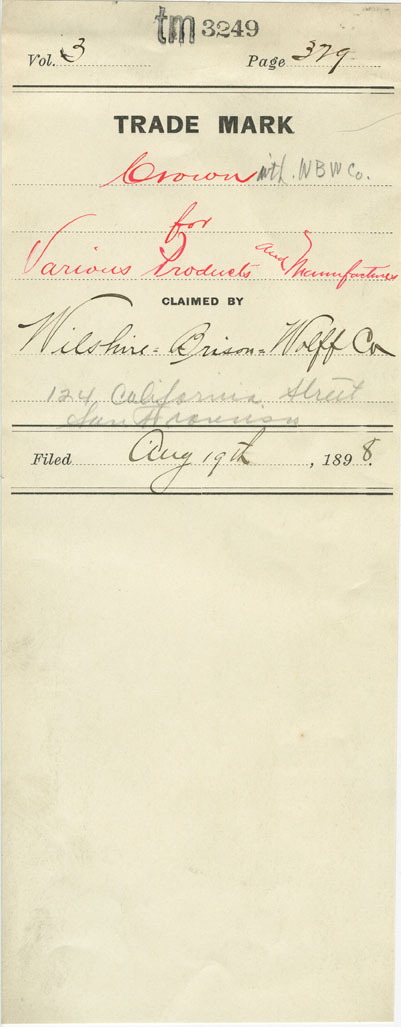 tm 3249
Vol. 3 Page 379
TRADE MARK
Crown with. W B W Co.
for
Various Products and Manufactures
CLAIMED BY
Wilshire = Brison = Wolff Co
124 California Street
San Francisco
Filed Aug 19th, 1898.